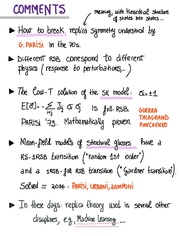 COMMENTS
meaning, with hierarchical structure
of states into states...
► How to break replica symmetry understood by
G. PARISI in the 70s.
► Different RSB correspond to different
physics (response to perturbations...)
► The low-T solution of the SK model. σᵢ=±1
E[σ] = - Σ Jij σᵢ σⱼ is full-RSB. GUERRA
Parisi '79. Mathematically proven TALAGRAND
PANCHENKO
► Mean-field models of structural glasses have a
RS-1RSB transition ("random 1st order")
and a 1RSB-full RSB transition ("Gardner transition").
Solved ≈ 2014 - PARISI, URBANI, ZAMPONI
► In these days: replica theory used in several other
disciplines, e.g, Machine learning ...